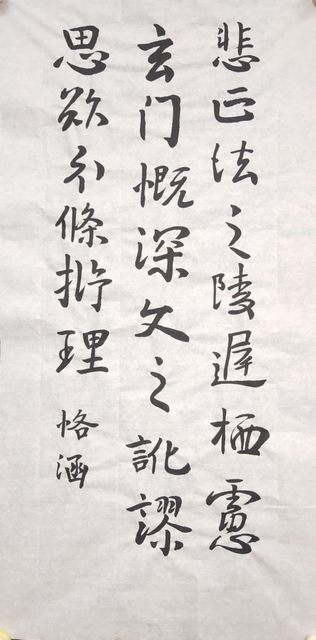 悲正法之陵遲栖慮
玄门慨深文之訛謬
思欲分條析理
恪涵